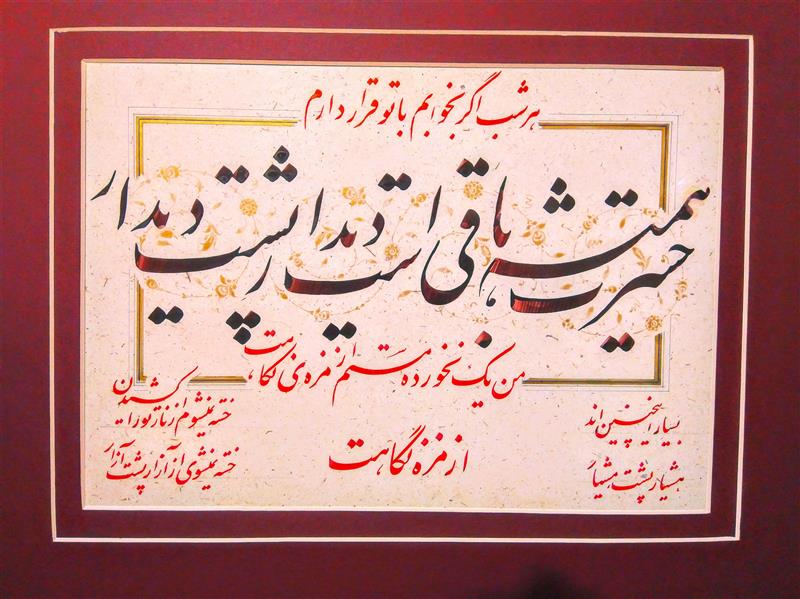 هر شب اگر نخوابم با تو قرار دارم
حسرت همیشه باقی است دیدار پشت دیدار
من یک نخورده مستم از مزه ی نگاهت
بسیار اینچنین اند
هشیار پشت هشیار
از مزه نگاهت
خسته نمیشوم از ناز تو را کشیدن
خسته نمیشوی از آزار پشت آزار